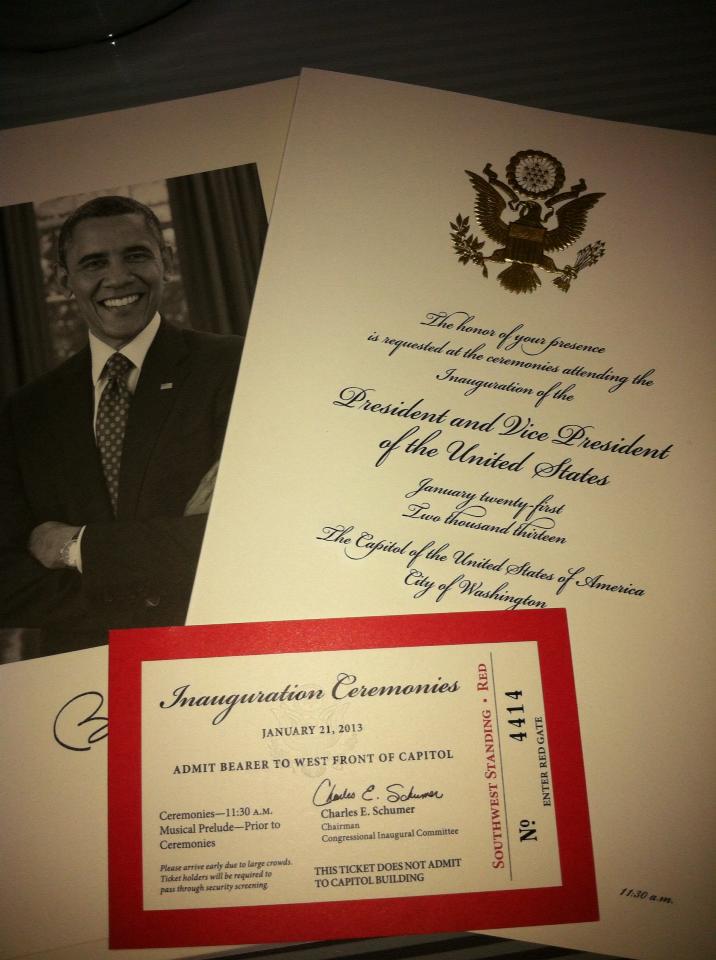 The honor of your presence
is requested at the ceremonies attending the
Inauguration of the
President and Vice President
of the United States
January twenty-first
Two thousand thirteen
The Capitol of the United States of America
City of Washington
11:30 a.m.
Inauguration Ceremonies
JANUARY 21, 2013
ADMIT BEARER TO WEST FRONT OF CAPITOL
Ceremonies—11:30 A.M.
Musical Prelude—Prior to
Ceremonies
Please arrive early due to large crowds.
Ticket holders will be required to
pass through security screening.
Charles E. Schumer
Charles E. Schumer
Chairman
Congressional Inaugural Committee
THIS TICKET DOES NOT ADMIT
TO CAPITOL BUILDING
SOUTHWEST STANDING • RED
No 4414
ENTER RED GATE